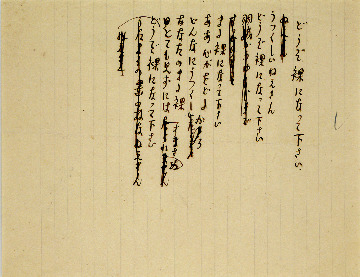 どうぞ裸になって下さい
うつくしいねえさん
どうぞ裸になって下さい
まる裸になって下さい
ああ心がをどる
どんなにうつくしかろ
あなたのまる裸
とても見ずにはすまされぬ
どうぞ裸になって下さい